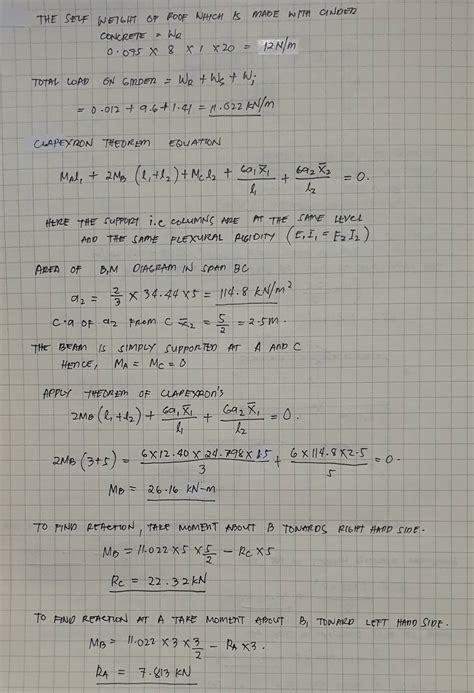 THE SELF WEIGHT OF ROOF WHICH IS MADE WITH CINDER
CONCRETE = WR
0.095 × 8 × 1 × 20 = 12 N/m
TOTAL LOAD ON GIRDER = WR + Ws + Wj
= 0.012 + 9.6 + 1.41 = 11.022 kN/m
CLAPEYRON THEOREM EQUATION
MAl1 + 2MB (l1+l2) + MCl2 + 6a1x̄1/l1 + 6a2x̄2/l2 = 0.
HERE THE SUPPORT i.e COLUMNS ARE AT THE SAME LEVEL
AND THE SAME FLEXURAL RIGIDITY (E1I1 = E2I2)
AREA OF B.M DIAGRAM IN SPAN BC
a2 = 2/3 × 34.44 × 5 = 114.8 kN/m²
C.G OF a2 FROM C x̄2 = 5/2 = 2.5 m.
THE BEAM IS SIMPLY SUPPORTED AT A AND C
HENCE, MA = MC = 0
APPLY THEOREM OF CLAPEYRON'S
2MB (l1+l2) + 6a1x̄1/l1 + 6a2x̄1/l2 = 0.
2MB (3+5) = 6×12.40 × 24.798 × 1.5/3 + 6×114.8×2.5/5 = 0.
MB = 26.16 kN-m
TO FIND REACTION, TAKE MOMENT ABOUT B TOWARDS RIGHT HAND SIDE.
MB = 11.022 × 5 × 5/2 - RC × 5
RC = 22.32 kN
TO FIND REACTION AT A TAKE MOMENT ABOUT B, TOWARD LEFT HAND SIDE.
MB = 11.022 × 3 × 3/2 - RA × 3.
RA = 7.813 kN